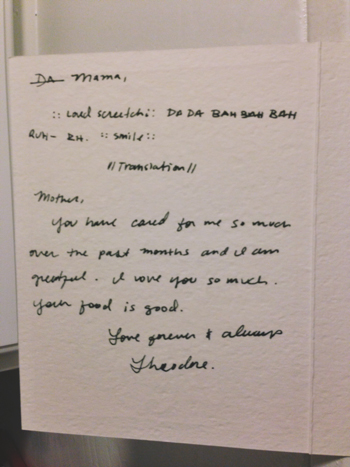 DA Mama,
:: Loud screetch:: DA DA BAH BAH BAH
RUH- RH. :: smile::
//Translation//
Mother,
You have cared for me so much
over the past months and I am
greatful. I love you so much.
Your food is good.
Love forever & always
Theodore.